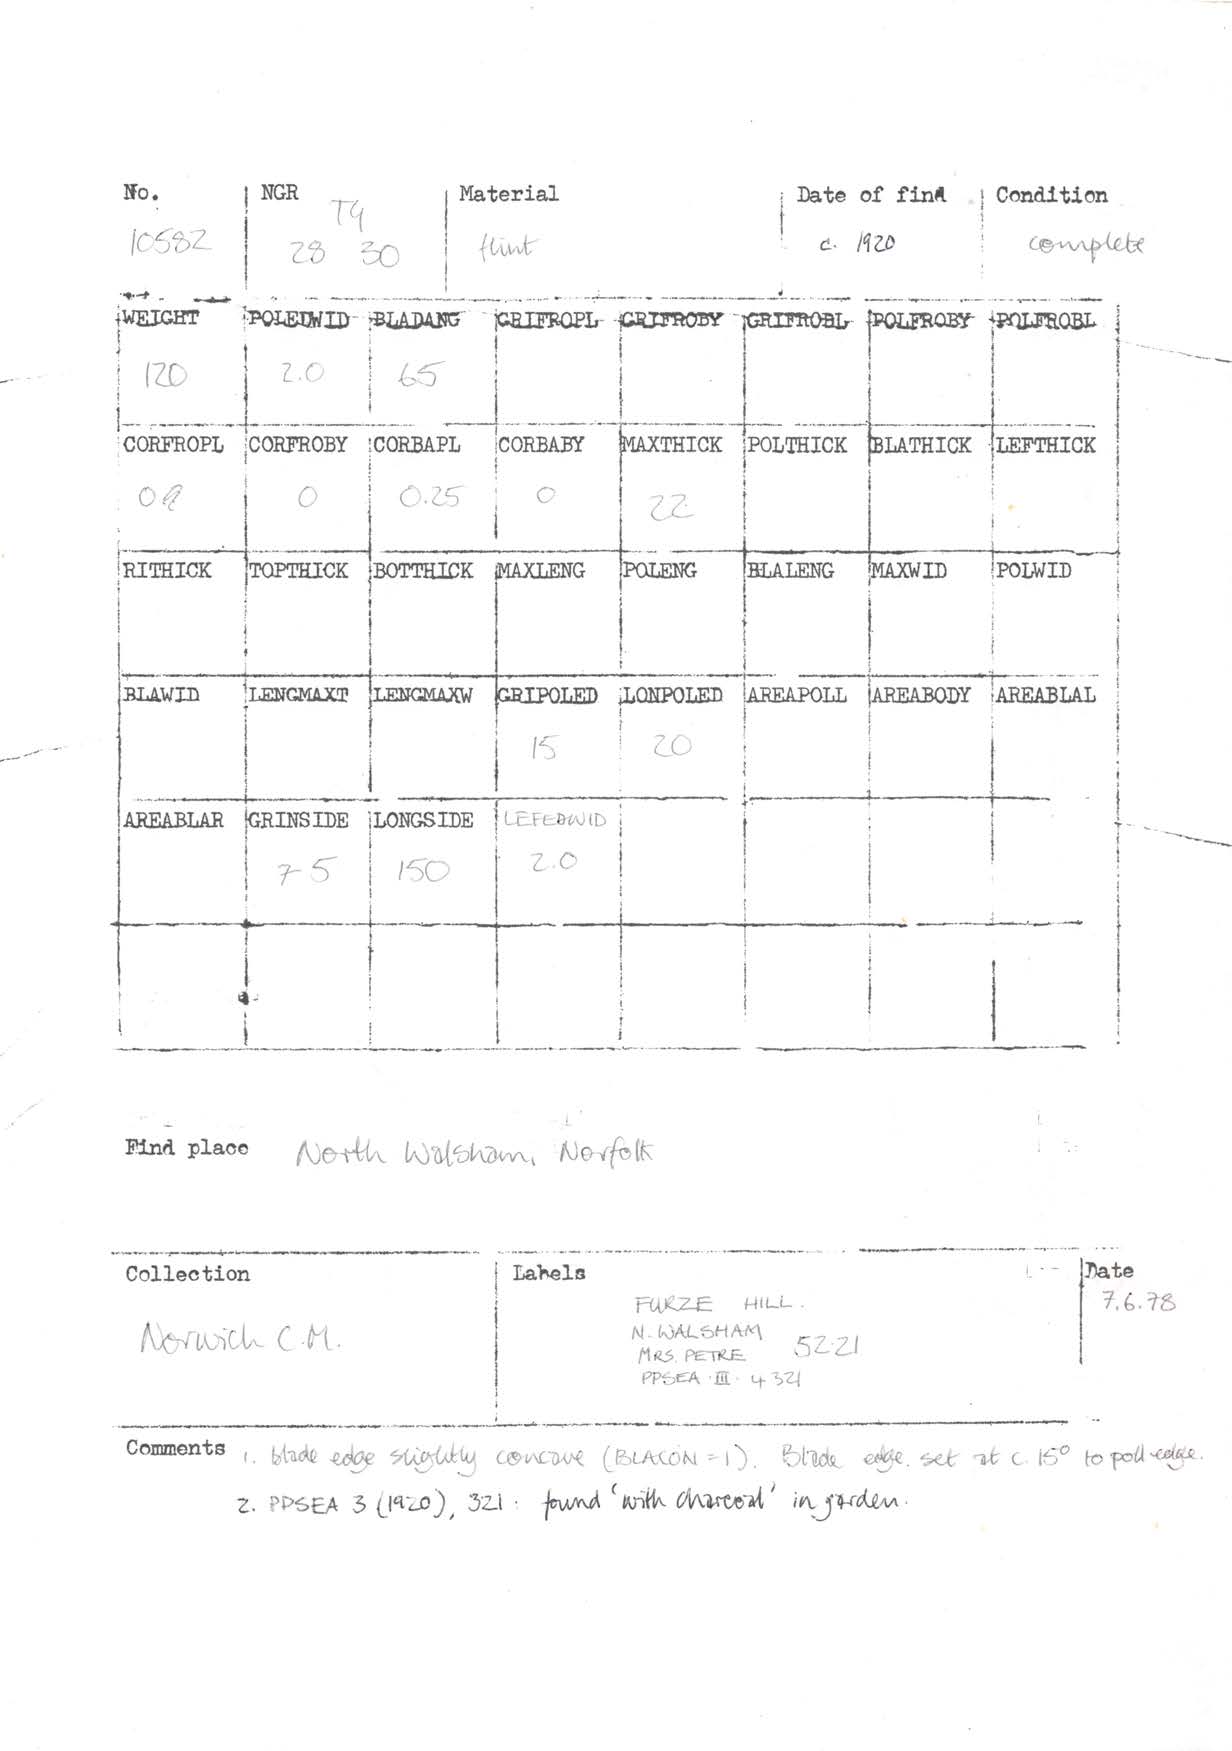 No. NGR Material Date of find Condition
TG
10582 28 30 flint c. 1920 complete
WEIGHT POLEDWID BLADANG GRIFROPL GRIFROBY GRIFROBL POLFROBY POLFROBL
120 2.0 65
CORFROPL CORFROBY CORBAPL CORBABY MAXTHICK POLTHICK BLATHICK LEFTHICK
0 0.25 0 22
RITHICK TOPTHICK BOTTHICK MAXLENG POLENG BLALENG MAXWID POLWID
BLAWID LENGMAXT LENGMAXW GRIPOLED LONPOLED AREAPOLL AREABODY AREABLAL
15 20
AREABLAR GRINSIDE LONGSIDE LEFEDWID
75 150 2.0
Find place North Walsham, Norfolk
Collection Labels Date
FURZE HILL. 7.6.78
Norwich C.M. N. WALSHAM 52.21
MRS. PETRE
PPSEA . III . 4 321
Comments 1. blade edge slightly concave (BLACON = 1). Blade edge set at c. 15° to poll edge.
2. PPSEA 3 (1920), 321 : found 'with charcoal' in garden.